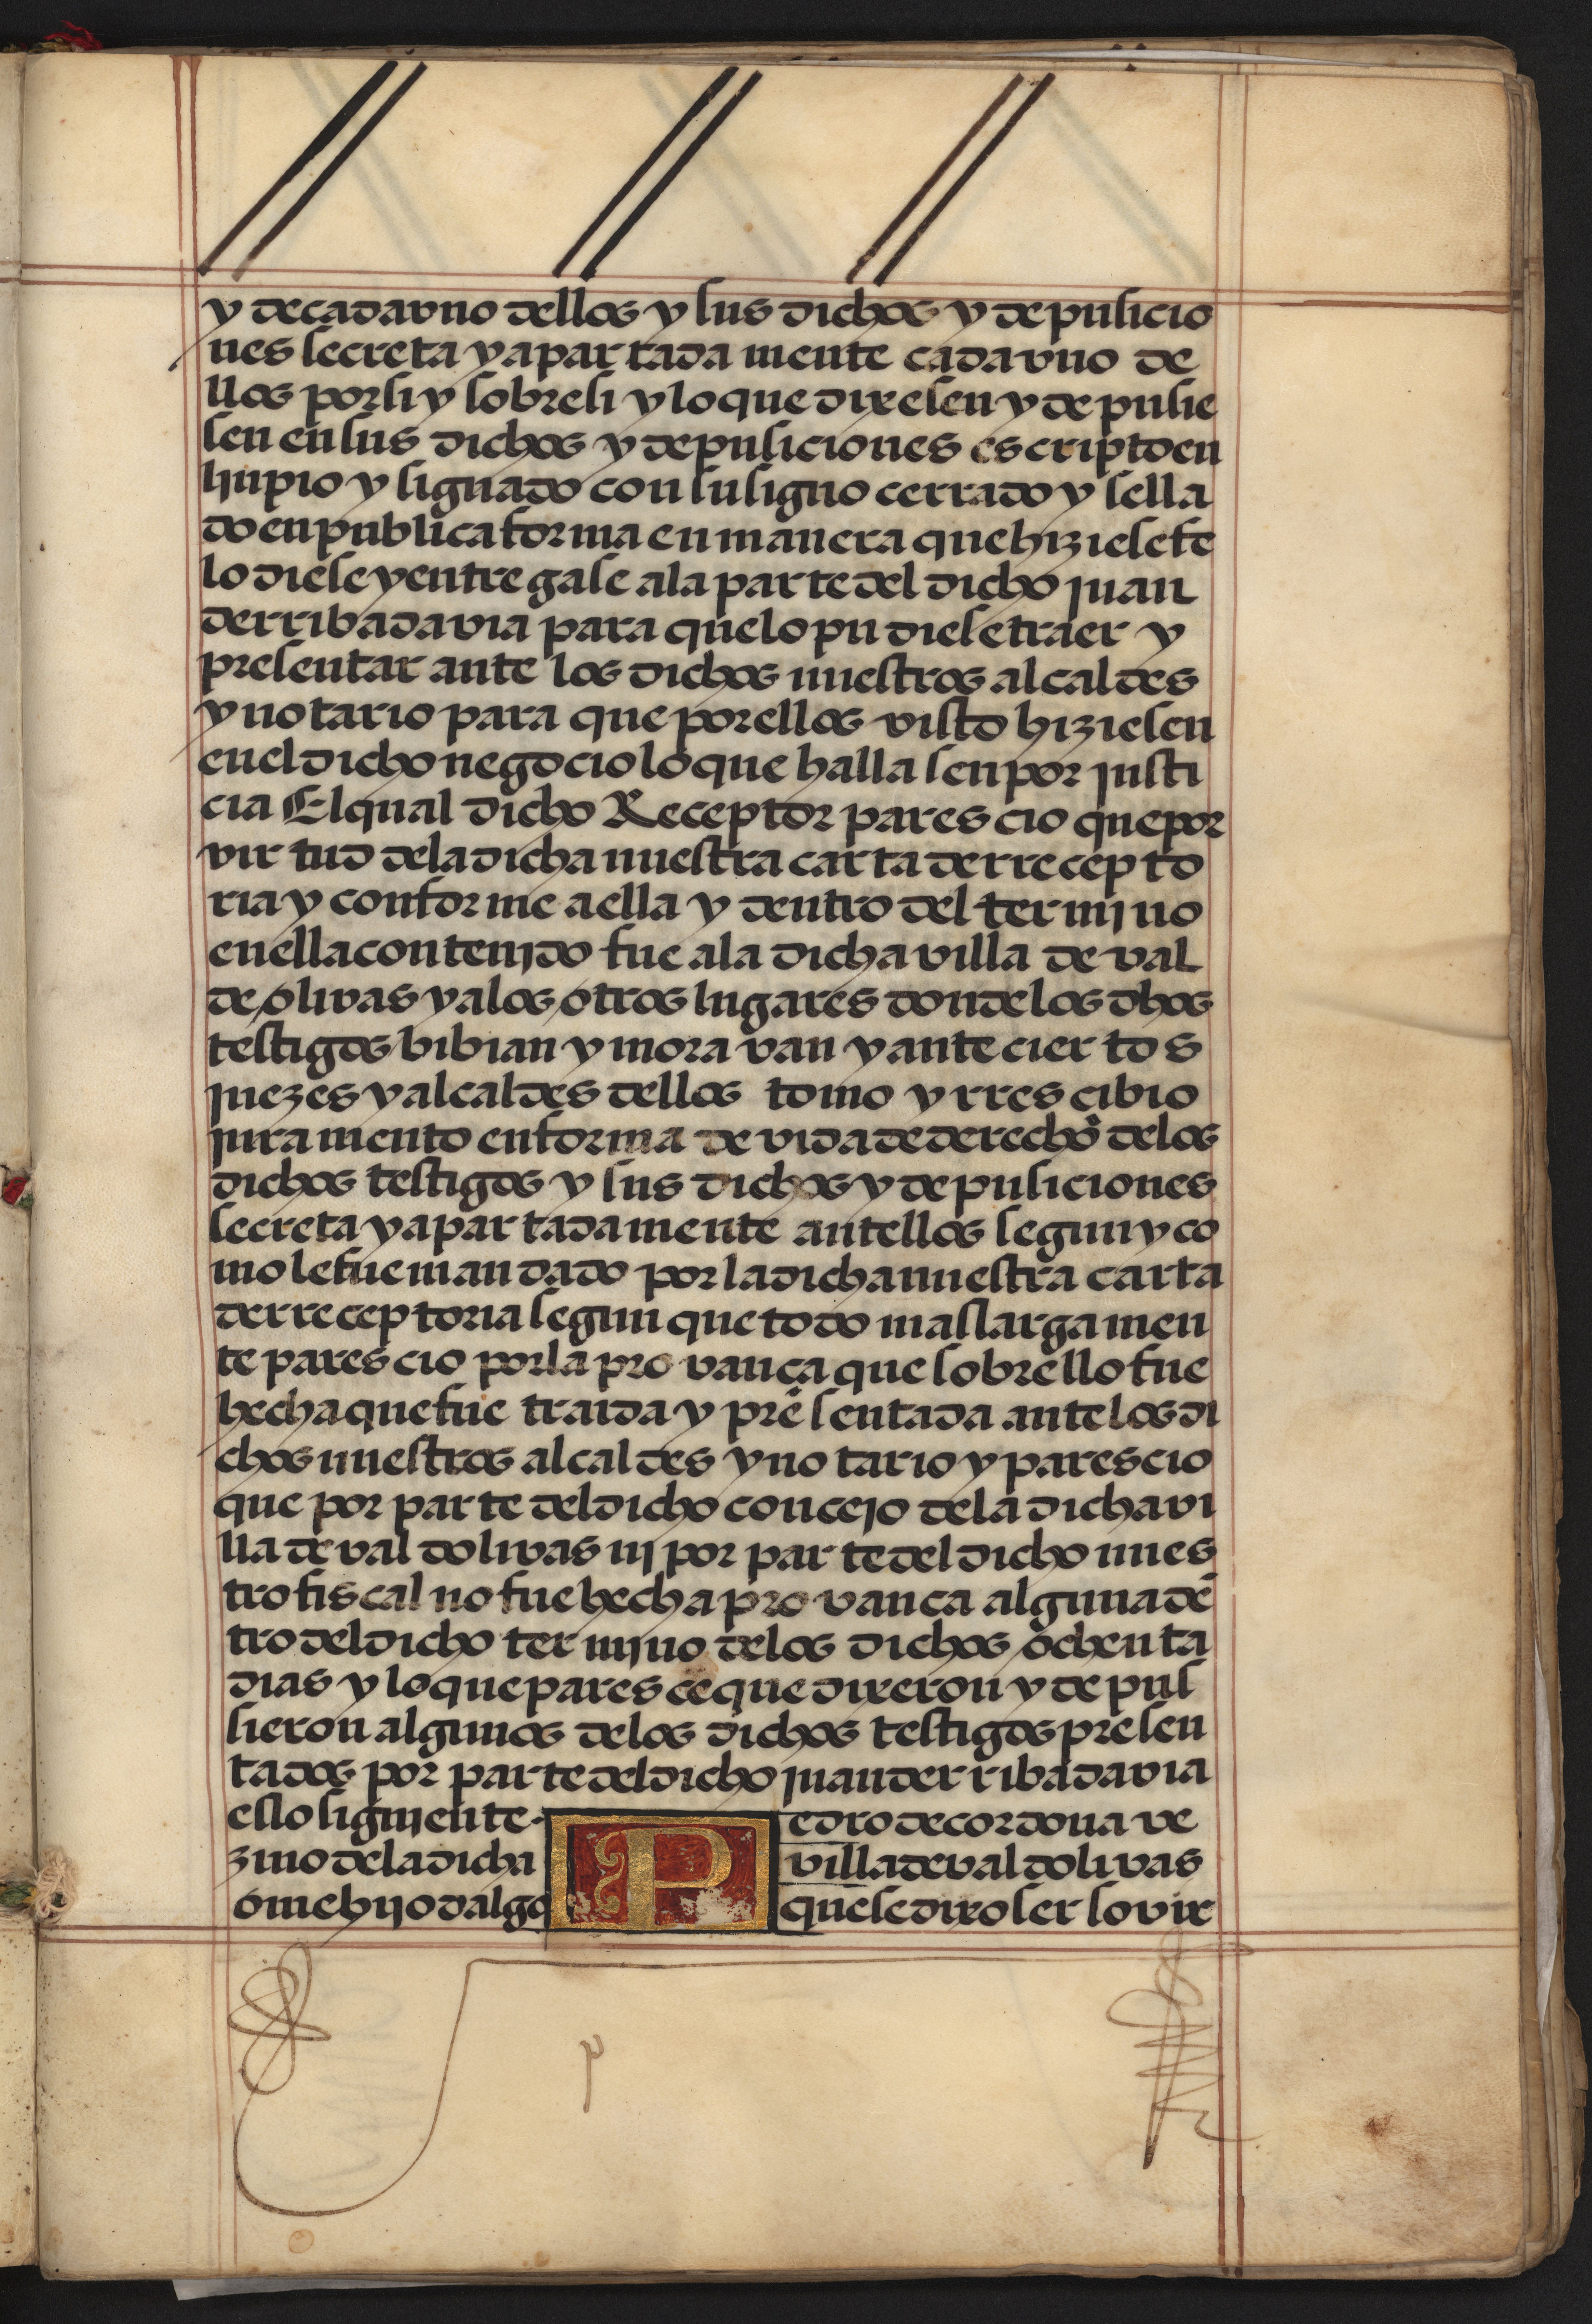 y de cada vno dellos y sus dichos y depusicio
nes secreta y apartada mente cada vno de
llos por si y sobre si y lo que dixesen y depusie
sen en sus dichos y depusiciones escripto en
linpio y signado con su signo cerrado y sella
do en publica forma en manera que hiziese fe
lo diese y entregase a la parte del dicho juan
de rribadavia para que lo pudiese traer y
presentar ante los dichos nuestros alcaldes
y notario para que por ellos visto hiziesen
en el dicho negocio lo que hallasen por justi
cia El qual dicho Receptor parescio que por
virtud de la dicha nuestra carta de rrecepto
ria y conforme a ella y dentro del termjno
en ella contenjdo fue a la dicha villa de val
de olivas y a los otros lugares donde los dhos
testigos bibian y moravan y ante ciertos
juezes y alcaldes dellos tomo y rrescibio
juramento en forma de vida de derecho de los
dichos testigos y sus dichos y depusiciones
secreta y apartadamente antellos segun y co
mo le fue mandado por la dicha nuestra carta
de rreceptoria segun que todo mas larga men
te parescio por la provança que sobrello fue
hecha que fue traida y presentada ante los di
chos nuestros alcaldes y notario y parescio
que por parte del dicho concejo de la dicha vi
lla de valdolivas nj por parte del dicho nues
tro fiscal no fue hecha provanca alguna dē
tro del dicho termjno de los dichos ochenta
dias y lo que paresce que dixeron y depus
sieron algunos de los dichos testigos presen
tados por parte del dicho juan de rribadavia
es lo siguiente. Pedro de cordoua ve
zino de la dicha villa de valdolivas
ome hijodalgo que se dixo ser so vir
p